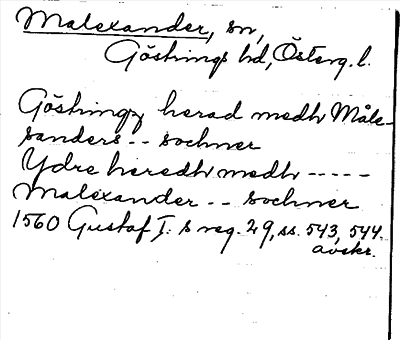 Malexander, sn,
Göstrings hd, Österg. l.
Göstringz herad medh Måle-
sanders -- sochner
Ydre heredh medh -----
Malexander -- sochner
1560 Gustaf I:s reg. 29, ss. 543, 544.
avskr.